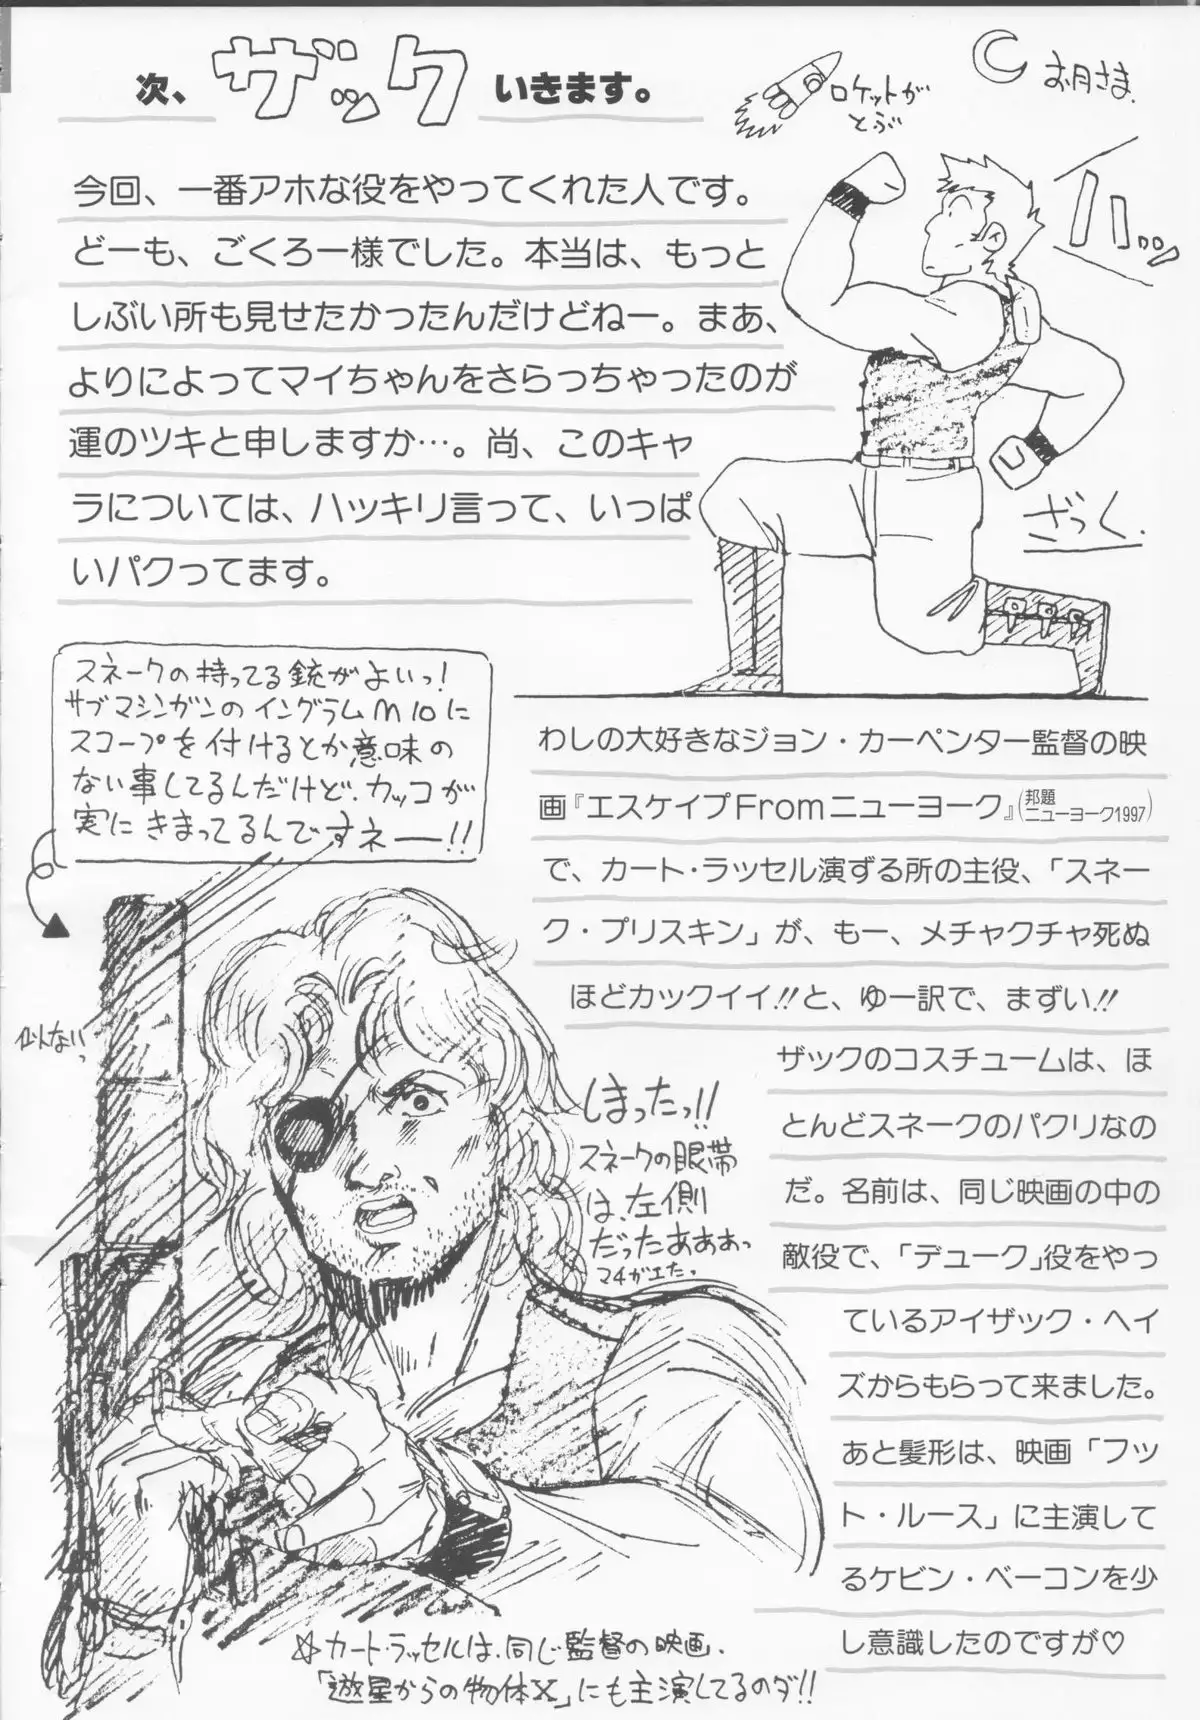 次、ザックいきます。
ロケットが
とぶ
お月さま
今回、一番アホな役をやってくれた人です。
どーも、ごくろー様でした。本当は、もっと
しぶい所も見せたかったんだけどねー。まあ、
よりによってマイちゃんをさらっちゃったのが
運のツキと申しますか…。尚、このキャ
ラについては、ハッキリ言って、いっぱ
いパクってます。
ざっく.
スネークの持ってる銃がよいっ!
サブマシンガンのイングラムM10に
スコープを付けるとか意味の
ない事してるんだけど、カッコが
実にきまってるんですネー!!
わしの大好きなジョン・カーペンター監督の映
画『エスケイプFromニューヨーク』(邦題ニューヨーク1997)
で、カート・ラッセル演ずる所の主役、「スネー
ク・プリスキン」が、もー、メチャクチャ死ぬ
ほどカックイイ!!と、ゆー訳で、まずい!!
ザックのコスチュームは、ほ
とんどスネークのパクリなの
だ。名前は、同じ映画の中の
敵役で、「デューク」役をやっ
ているアイザック・ヘイ
ズからもらって来ました。
あと髪形は、映画「フッ
ト・ルース」に主演して
るケビン・ベーコンを少
し意識したのですが♡
似ないっ
しまったっ!!
スネークの眼帯
は、左側
だったあああっ
マチガエた.
☆カート・ラッセルは、同じ監督の映画、
「遊星からの物体X」にも主演してるのダ!!